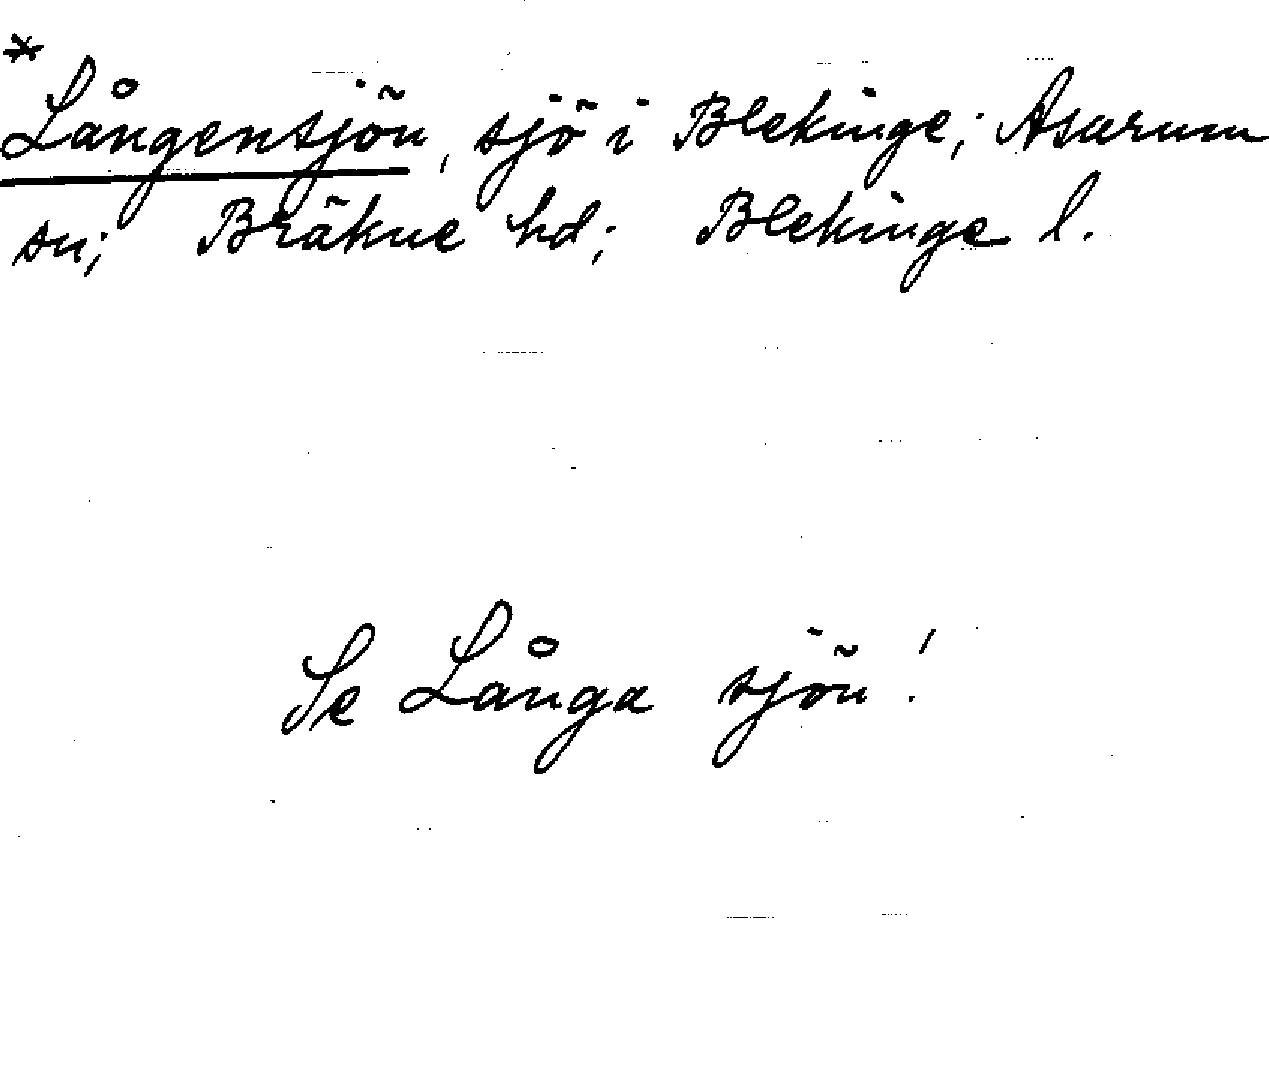 *
Långensjön, sjö i Blekinge; Asarum
sn; Bräkne hd; Blekinge l.
Se Långa sjön!